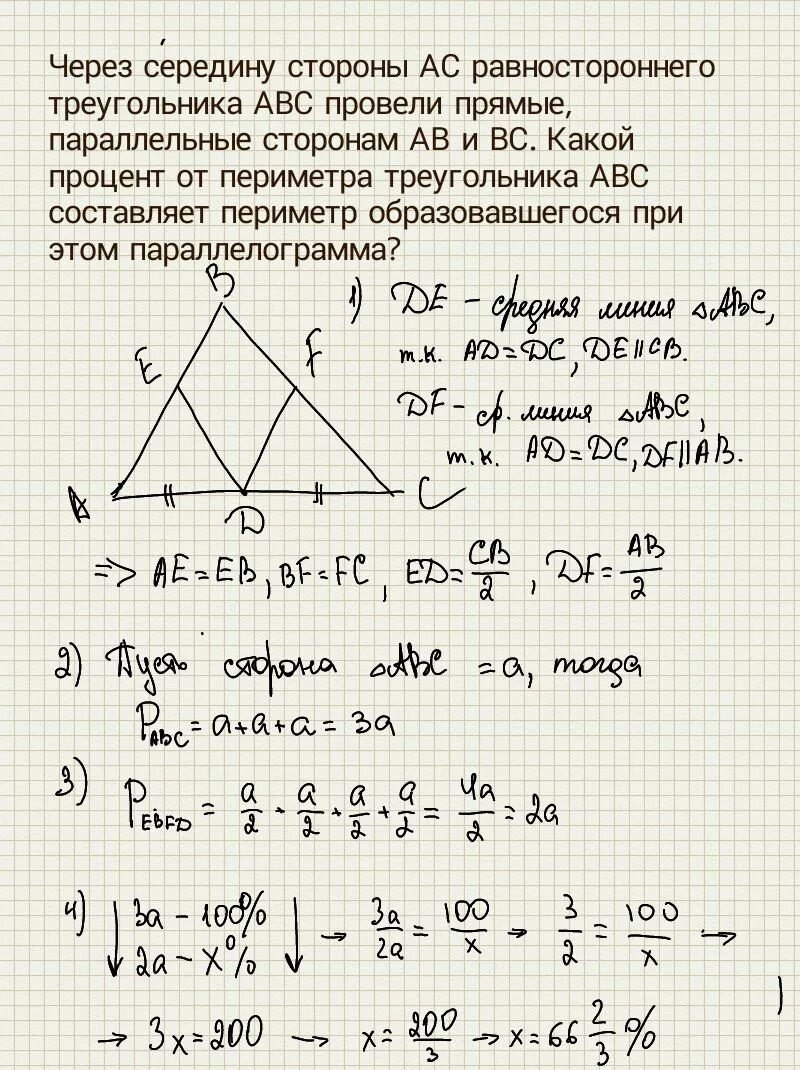 Через середину стороны АС равностороннего
треугольника АВС провели прямые,
параллельные сторонам АВ и ВС. Какой
процент от периметра треугольника АВС
составляет периметр образовавшегося при
этом параллелограмма?
B
E
F
A
D
C
1) DE – средняя линия △ABC,
т.к. AD=DC, DE∥CB.
DF – ср. линия △ABC,
т.к. AD=DC, DF∥AB.
=> AE=EB, BF=FC, ED=CB/2, DF=AB/2
2) Пусть сторона △ABC = a, тогда
P_ABC = a+a+a = 3a
3) P_EBFD = a/2 + a/2 + a/2 + a/2 = 4a/2 = 2a
4) ↓ 3a – 100% ↓ → 3a/2a = 100/x → 3/2 = 100/x →
2a – x%
→ 3x=200 → x=200/3 → x=66 2/3 %